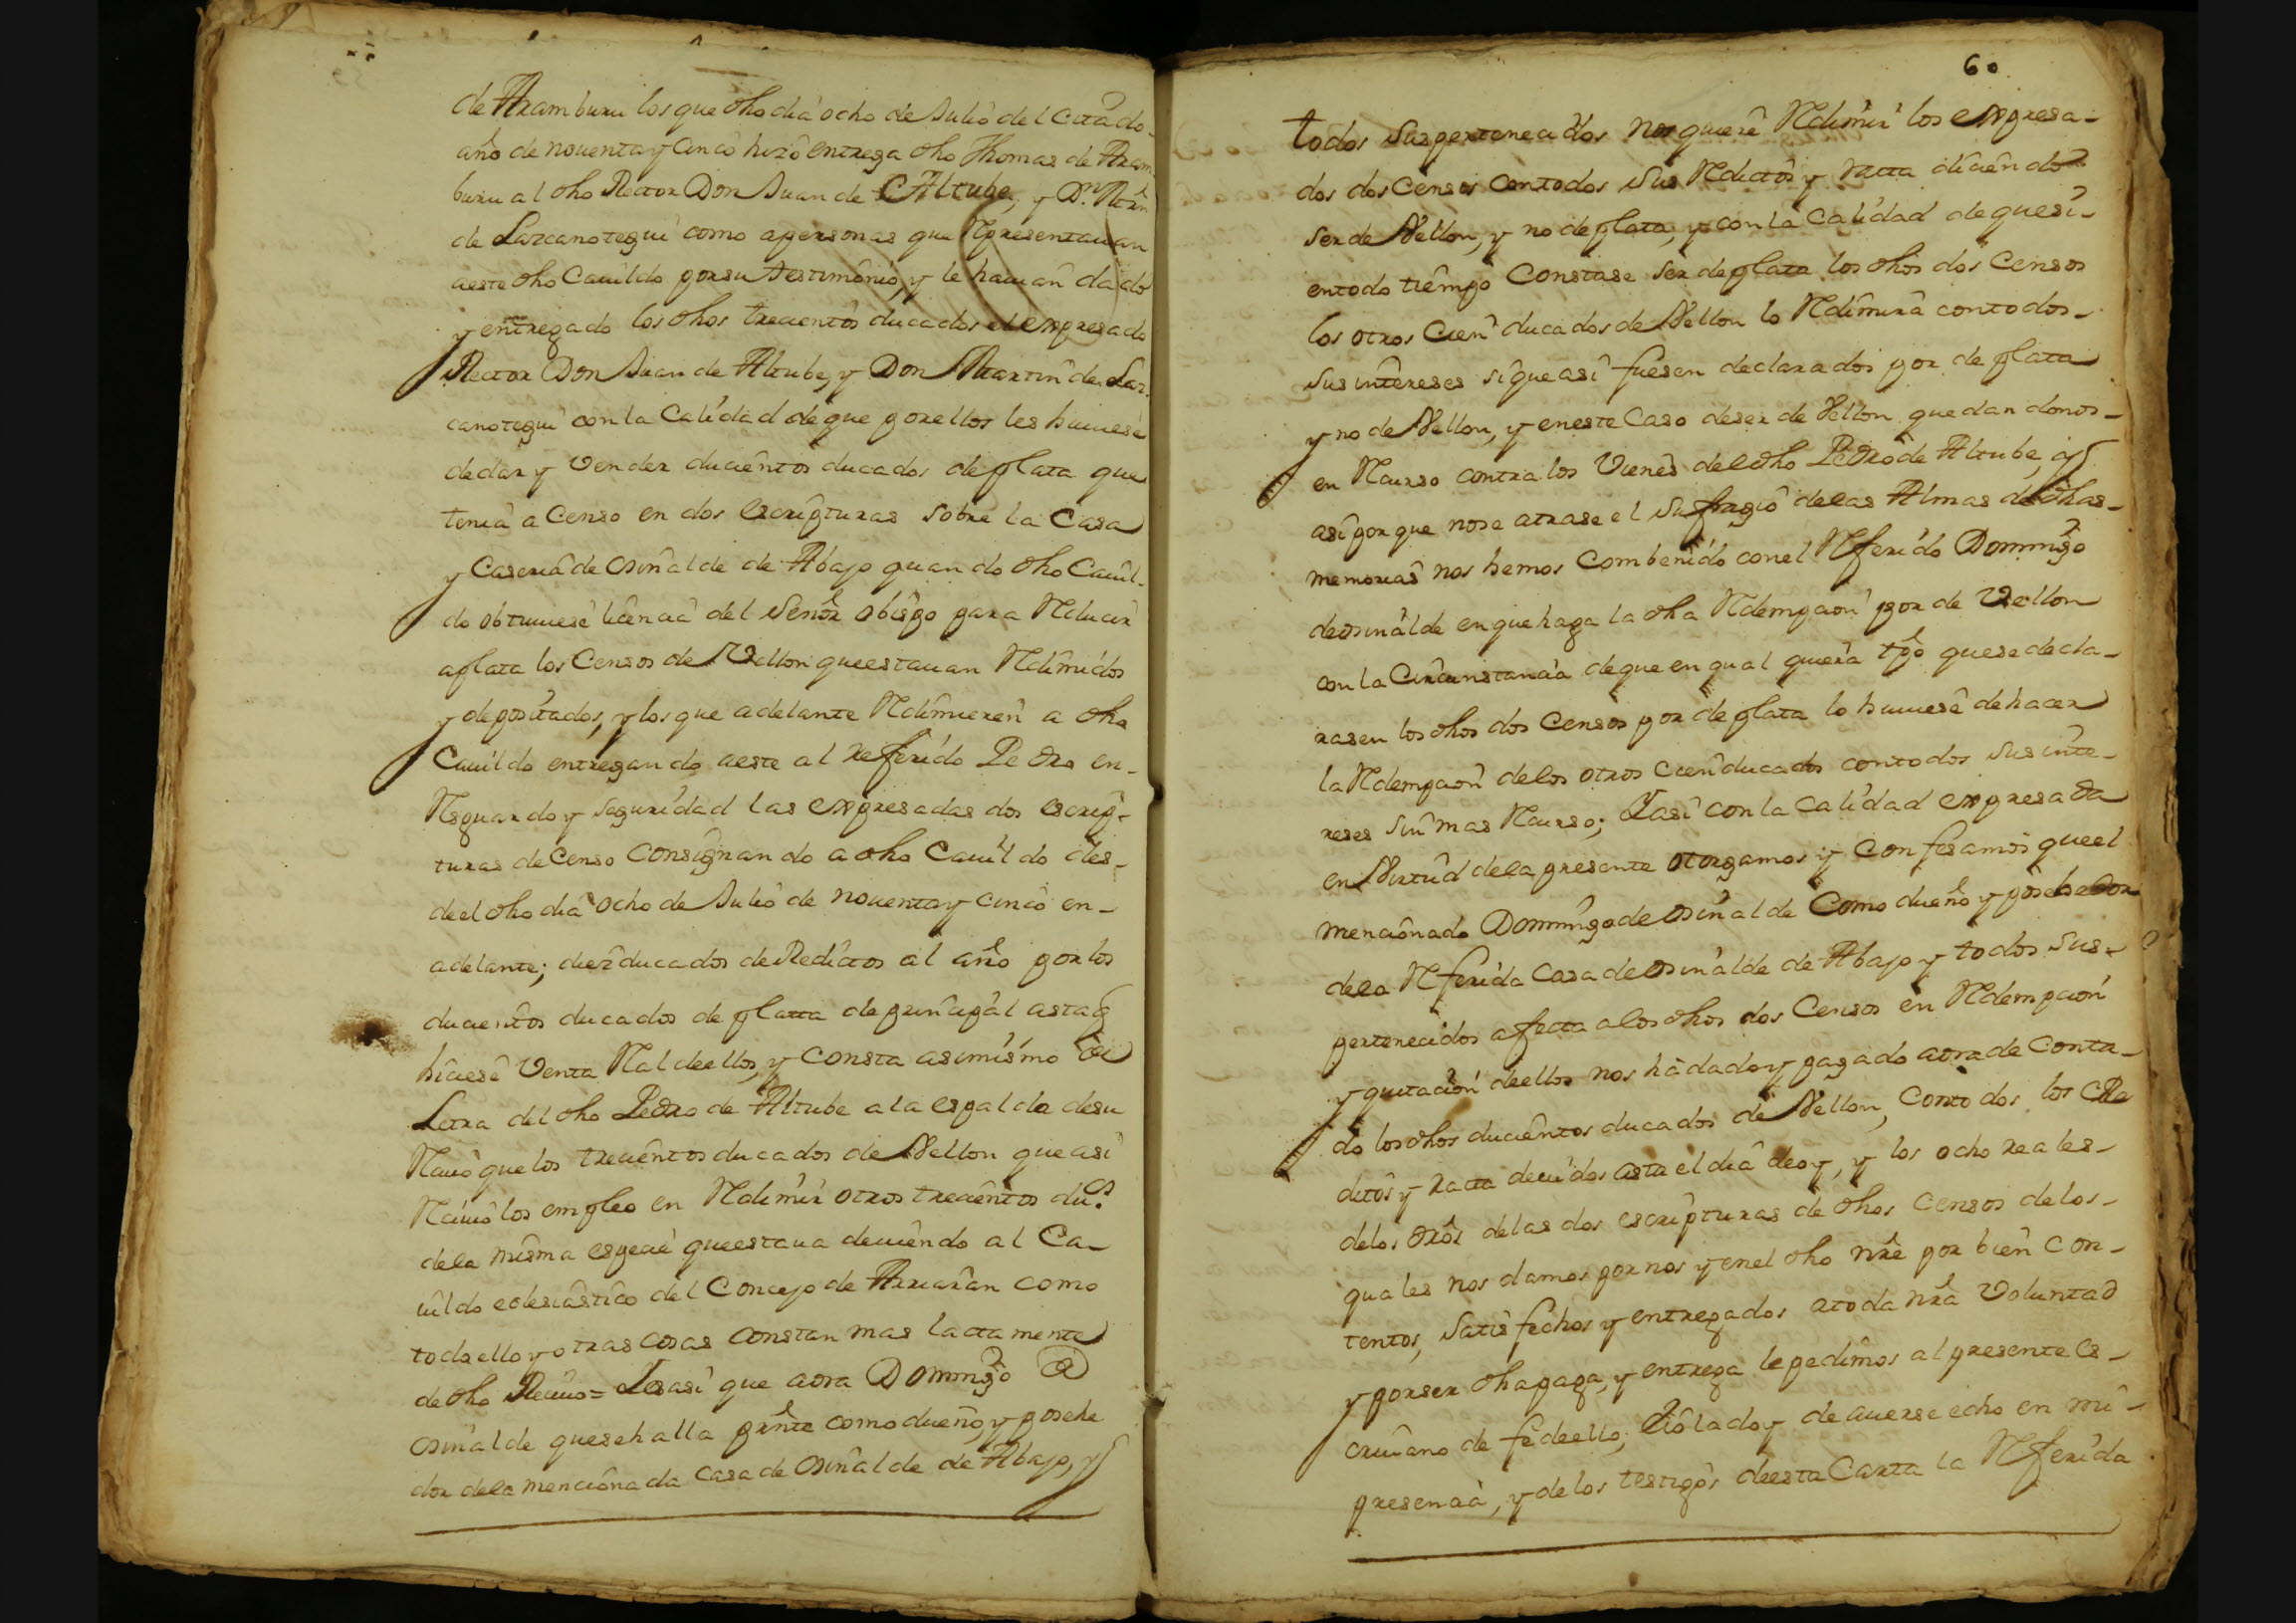 de Aramburu los que dho dia ocho de Julio del citado
año de nouenta y cinco hizo entrega dho Thomas de Aram
buru al dho Rector Don Juan de Altube, y Dn. Mrn
de Lazcanotegui como a personas que Representauan
a este dho Cauildo por su testimonio, y le hauian dado
y entregado los dhos trecientos ducados el expresado
Rector Don Juan de Altube, y Don Martin de Laz
canotegui con la calidad de que por ellos les huuiese
de dar y vender ducientos ducados de plata que
tenia a Censo en dos escripturas sobre la Casa
y Caseria de Osinalde de Abajo quando dho Cauil-
do obtuuiese licencia del Señor obispo para Reducir
a plata los Censos de Vellon que estauan Redimidos
y depositados, y los que adelante Redimieren a dho
Cauildo entregando a este al referido Pedro en-
Resguardo y seguridad las expresadas dos escrip-
turas de Censo consignando a dho Cauildo des-
de el dho dia ocho de Julio de nouenta y cinco en-
adelante; diez ducados de Redictos al año por los
ducientos ducados de platta de principal asta q
hiciese Venta Real de ellos, y consta asimismo de
Letra del dho Pedro de Altube a la espalda de su
Reciuo que los trecientos ducados de Vellon que asi
Reciuio los empleo en Redimir otros trecientos dus.
de la misma especie que estaua deuiendo al Ca-
uildo eclesiastico del Concejo de Arriaran como
todo ello y otras cosas constan mas lactamente
de dho Reciuo= Y es asi que aora Domingo de
Osinalde que se halla prnte como dueño, y posehe
dor de la mencionada casa de Osinalde de Abajo, y
60
todos sus pertenecidos nos quiere Redimir los expresa-
dos dos Censos con todos sus Redictos y ratta diciendo
ser de Vellon, y no de plata, y con la calidad de que si-
en todo tiempo constase ser de plata los dhos dos Censos
los otros cien ducados de Vellon lo Redimira con todos-
sus intereses si que asi fuesen declarados por de plata
y no de Vellon, y en este Caso de ser de Vellon quedandonos-
en Recurso contra los Vienes del dho Pedro de Altube, y
asi por que no se atrase el sufragio de las Almas de dhas-
memorias nos hemos combenido con el Referido Domingo
de Osinalde en que haga la dha Redempcion por de Vellon
con la circunstancia de que en qual quiera tpo que se decla-
rasen los dhos dos Censos por de plata lo huuiese de hacer
la Redempcion de los otros cien ducados con todos sus inte-
reses sin mas Recurso; Y asi con la calidad expresada
en Virtud de la presente otorgamos y confesamos que el
mencionado Domingo de Osinalde como dueño y posehedor
de la Referida Casa de Osinalde de Abajo y todos sus-
pertenecidos afecta a los dhos dos Censos en Redempcion
y quitacion de ellos nos ha dado y pagado aora de conta-
do los dhos ducientos ducados de Vellon, con todos los Re
ditos y ratta deuidos asta el dia de oy, y los ocho reales-
de los dros de las dos escripturas de dhos censos de los-
quales nos damos por nos y en el dho nre por bien con-
tentos, satisfechos y entregados a toda nra Voluntad
y por ser dha paga, y entrega le pedimos al presente es-
criuano de fe de ello; Yo la doy de auerse echo en mi-
presencia, y de los testigos de esta Carta la Referida